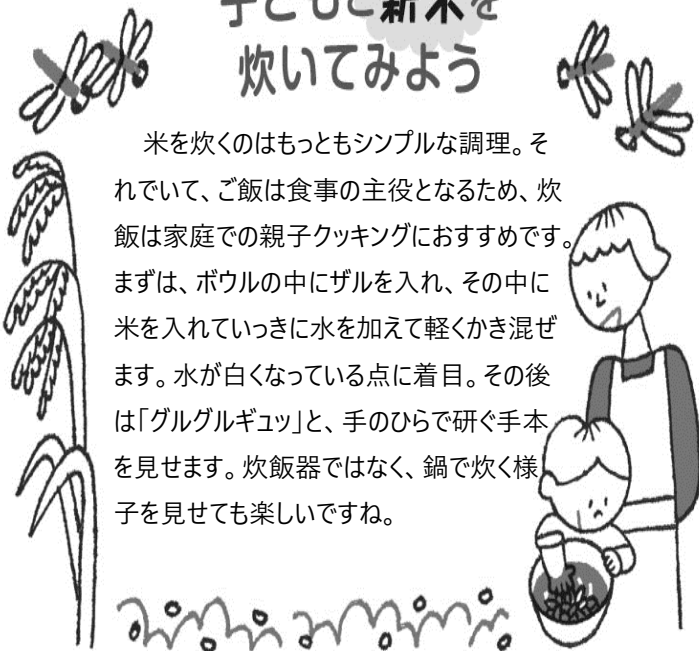 子どもと新米を
炊いてみよう
米を炊くのはもっともシンプルな調理。そ
れでいて、ご飯は食事の主役となるため、炊
飯は家庭での親子クッキングにおすすめです。
まずは、ボウルの中にザルを入れ、その中に
米を入れていっきに水を加えて軽くかき混ぜ
ます。水が白くなっている点に着目。その後
は「グルグルギュッ」と、手のひらで研ぐ手本
を見せます。炊飯器ではなく、鍋で炊く様
子を見せても楽しいですね。